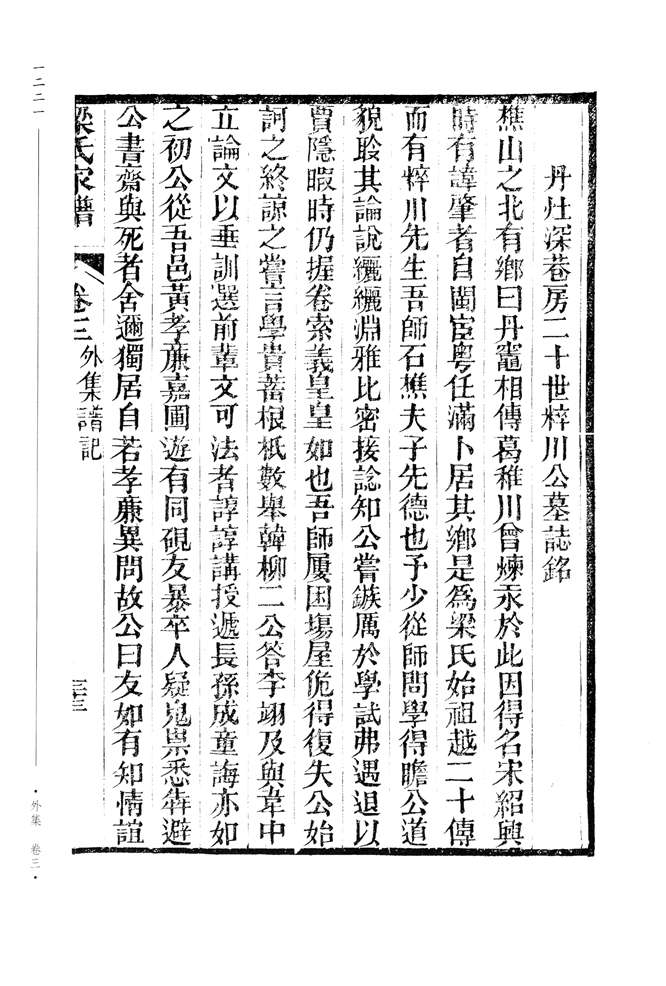 丹灶深巷房二十世梓川公墓誌銘
樵山之北有鄉曰丹竈相傳葛稚川曾煉汞於此因得名宋紹興
時有諱肇者自閩宦粵任滿卜居其鄉是爲梁氏始祖越二十傳
而有梓川先生吾師石樵夫子先德也予少從師問學得瞻公道
貌聆其論說纚纚淵雅比密接諗知公嘗鏃厲於學試弗遇退以
賈隱暇時仍握卷索義皇皇如也吾師屢困塲屋佹得復失公始
訶之終諒之嘗言學貴蓄根柢數舉韓柳二公答李翊及與韋中
立論文以垂訓選前輩文可法者諄諄講授遞長孫成童誨亦如
之初公從吾邑黃孝廉嘉圃遊有同硯友暴卒人疑鬼祟悉犇避
公書齋與死者舍邇獨居自若孝廉異問故公曰友如有知情誼
梁氏家譜 卷三 外集譜記 三三
一二二一
·外集 卷三·